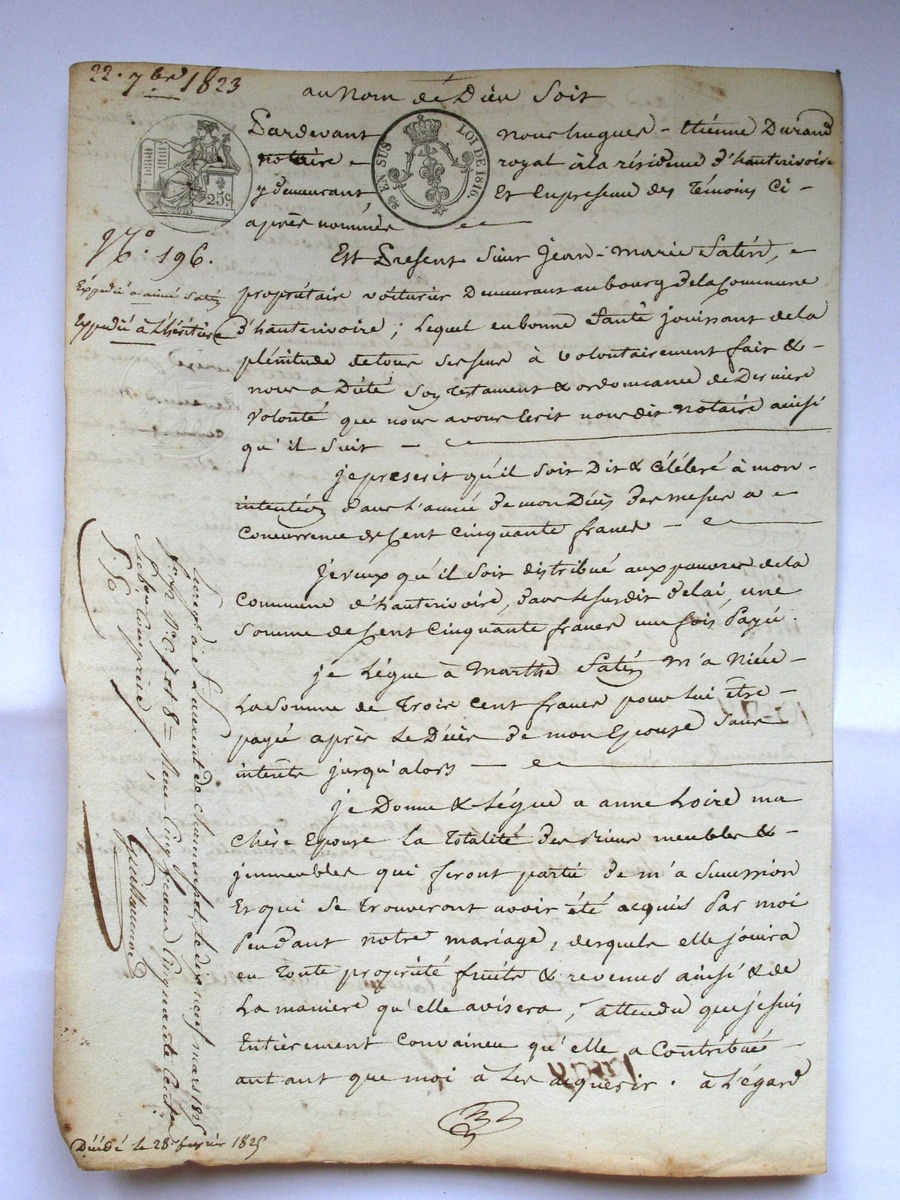 22. 7bre 1823
au Nom de Dieu Soit
Pardevant nous hugues-Etienne Durand
notaire royal à la résidence d'hauterivoire
y demeurant, Et En presence des Témoins Ci-
après nommés
25 EN SUS
LOI DE 1816.
25c
No. 196.
Expédié a aimé Satin
Expédié à L'héritière
Est Present Sieur Jean-Marie Satin,
propriétaire voiturier Demeurant au bourg de la Commune
d'hauterivoire; Lequel en bonne Santé jouissant de la
plénitude de tous ses sens à volontairement fait &
nous a Dicté Son Testament & ordonnance de Derniere
Volonté que nous avons Ecrit nous dit notaire ainsi
qu'il suit
je prescrit qu'il soit Dit & Célébré à mon
intention dans L'année de mon Décès des messes a
Concurrence de Cent Cinquante francs
Je veux qu'il soit distribué aux pauvres de la
Commune d'hauterivoire, dans le susdit délai, une
Somme de Cent Cinquante francs une fois Payée.
je Légue à Marthe Satin m'a Niéce
La Somme de Trois Cent francs pour lui être
payée après Le Décès de mon Epouse Sans
intérêts jusqu'alors
je Donne & Légue a anne Loire ma
Chère Epouse la Totalité des Biens meubles &
jmmeubles qui feront partie de m'a Succession
Et qui se Trouveront avoir été acquis Par moi
Pendant notre mariage, desquels elle jouira
en Toute propriété fruits & revenus ainsi & de
La manière qu'elle avisera, attendu que je suis
Entièrement Convaincu qu'elle a Contribué
autant que moi à Les acquérir. à L'égard
Enregé à St Laurent de chamousset, le dix neuf mars 1825
fo 92 Ro C. 7 et 8 = Reçu Cinq francs Cinquante Centes
Subvon Comprise.
Guillaume
Décédé le 28 fevrier 1825